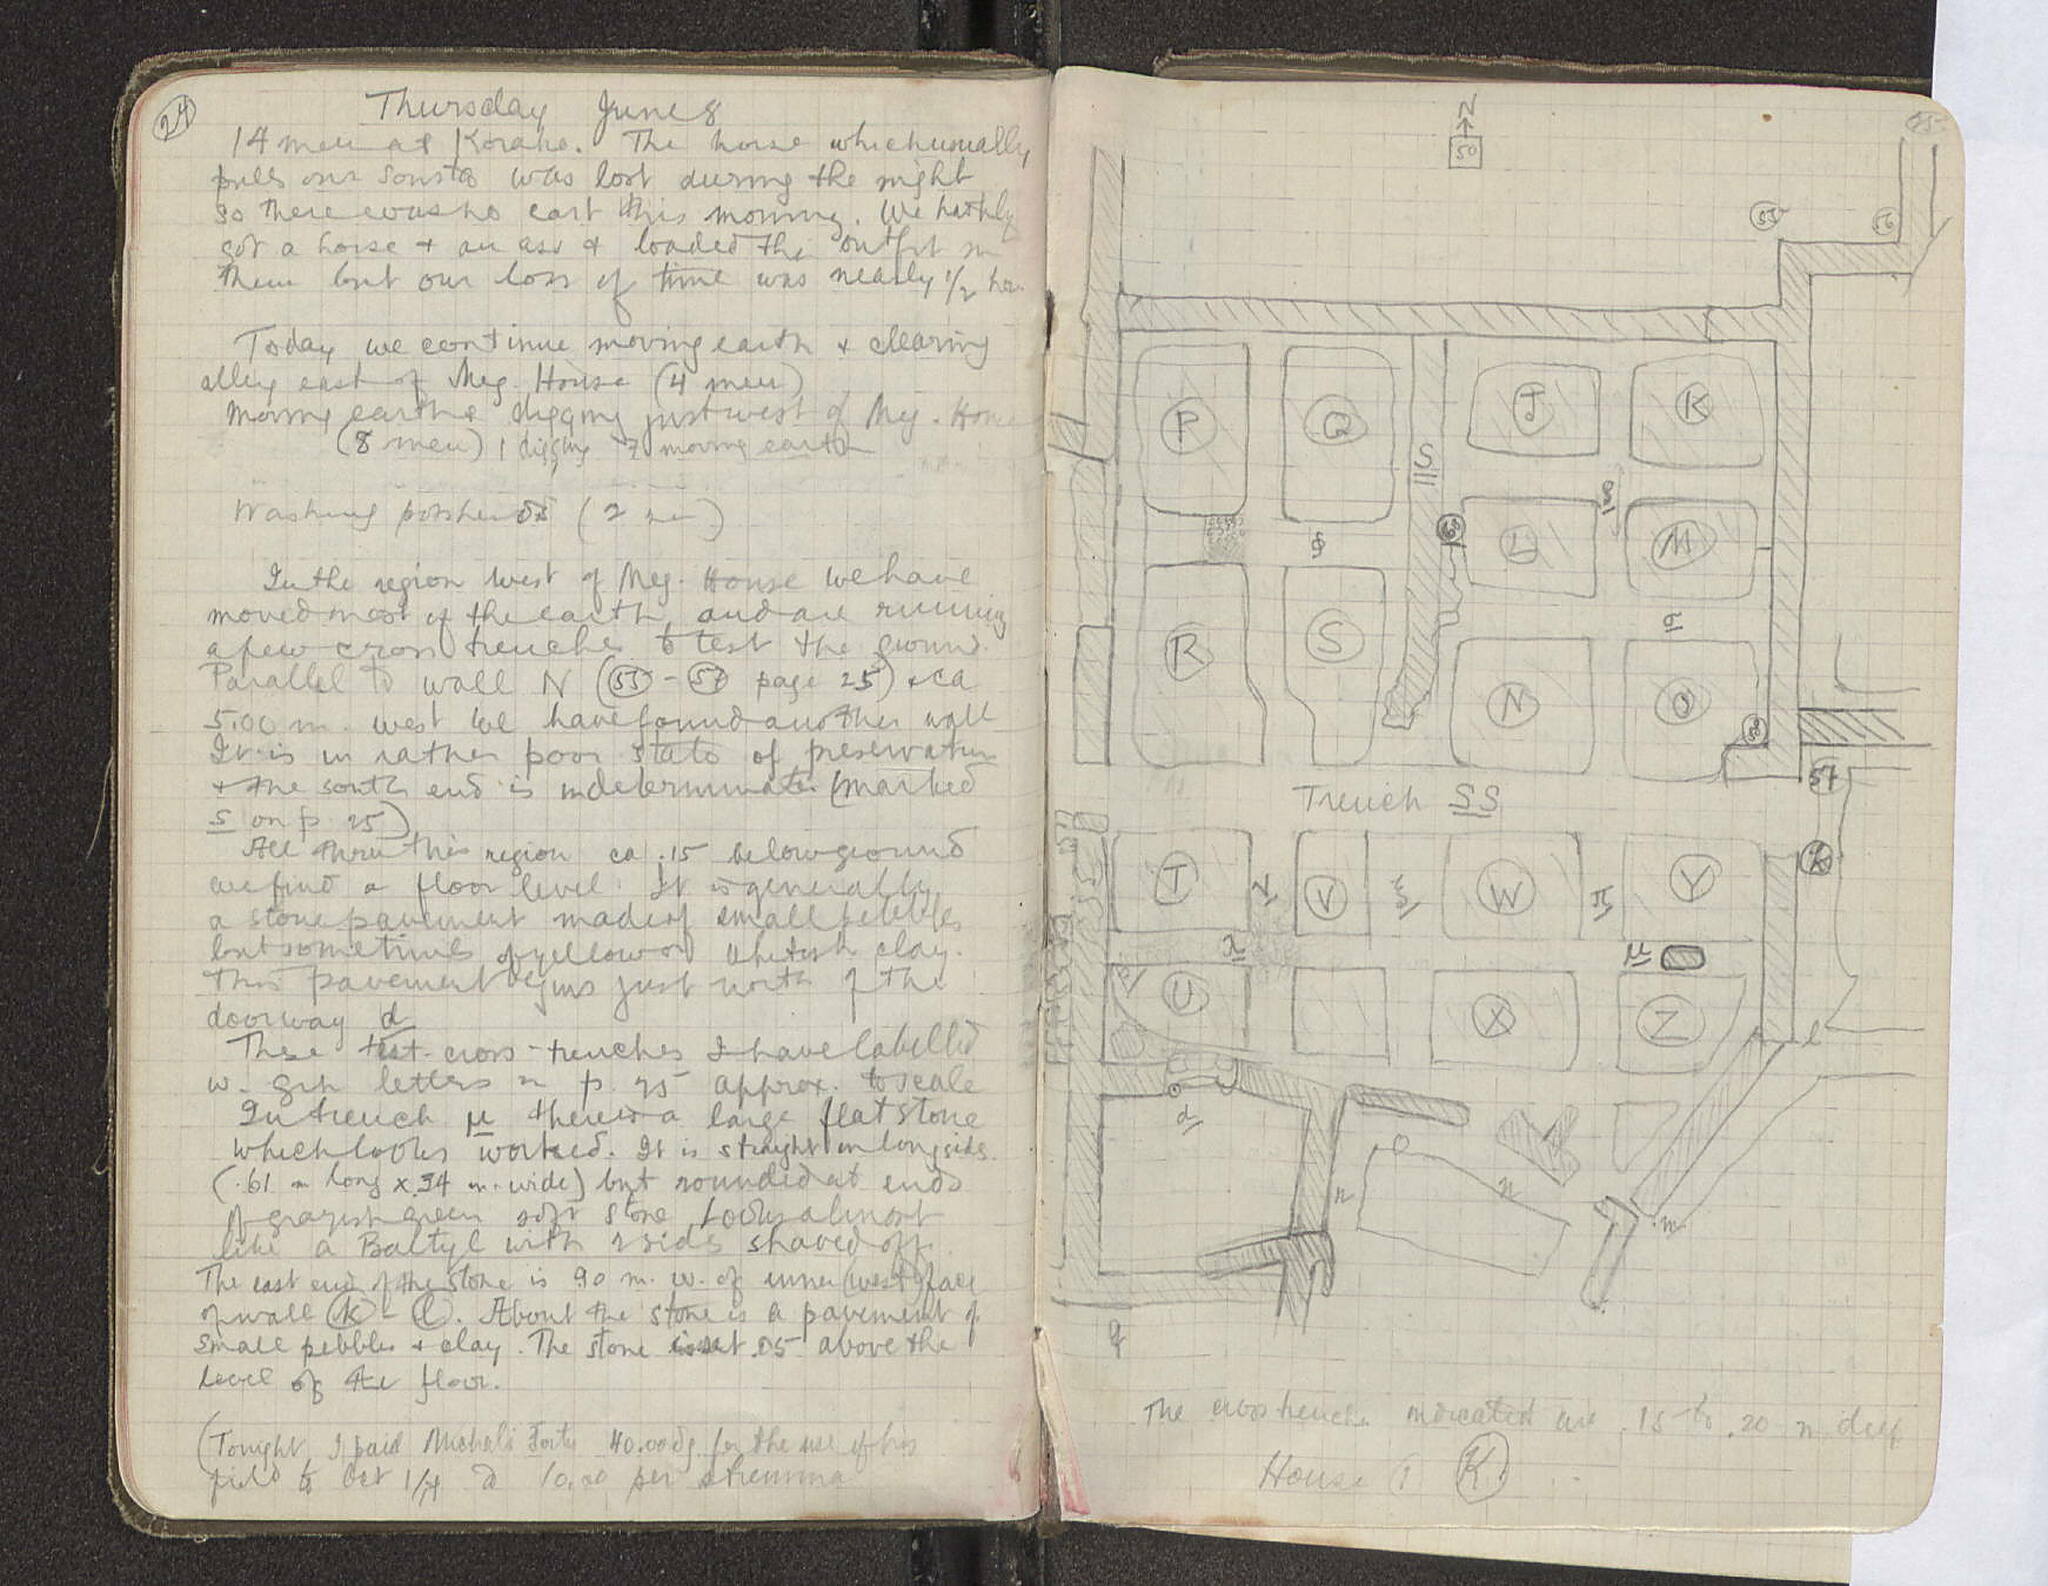 24
Thursday June 8
14 men at Korako. The horse which usually
pulls our sousta was lost during the night
so there was no cart this morning. We
got a horse + an ass & loaded the outfit on
them but our loss of time was nearly 1/2 hour
Today we continue moving earth & clearing
alley east of Meg. House (4 men)
Moving earth & digging just west of Meg. House
(8 men) 1 digging 7 moving earth
Washing potsherds (2 men)
In the region west of Meg. House we have
moved most of the earth and are running
a few cross trenches to test the ground.
Parallel to wall N (55 - 57 page 25) & ca
5.00 m. west we have found another wall
It is in rather poor state of preservation
& the south end is indeterminate (marked
S on p. 25)
All thru this region ca .15 below ground
we find a floor level. It is generally
a stone pavement made of small pebbles
but sometimes of yellow or whitish clay.
This pavement begins just north of the
doorway d
These test-cross-trenches I have labelled
w. Grk letters on p. 25 approx. to scale
In trench μ there is a large flat stone
which looks worked. It is straight on long sides
(.61 m long x .34 m. wide) but rounded at ends
of grayish green soft stone. Looks almost
like a Baetyl with 2 sides shaved off.
The east end of the stone is .90 m. w. of inner (west) face
of wall (k) - (l). About the stone is a pavement of
small pebbles & clay. The stone is set .05 above the
level of the floor.
(Tonight I paid Michali forty 40.00 dr. for the use of his
field to Oct 1/14 @ 10.00 per stremma
25
N
50
55
56
P
Q
S
J
K
68
L
M
φ
σ
R
S
N
O
58
57
Trench SS
T
ν
V
ξ
W
π
Y
k
λ
μ
U
X
Z
l
d
n
n
m
q
The cross trenches indicated are .15 to .20 m deep
House
K